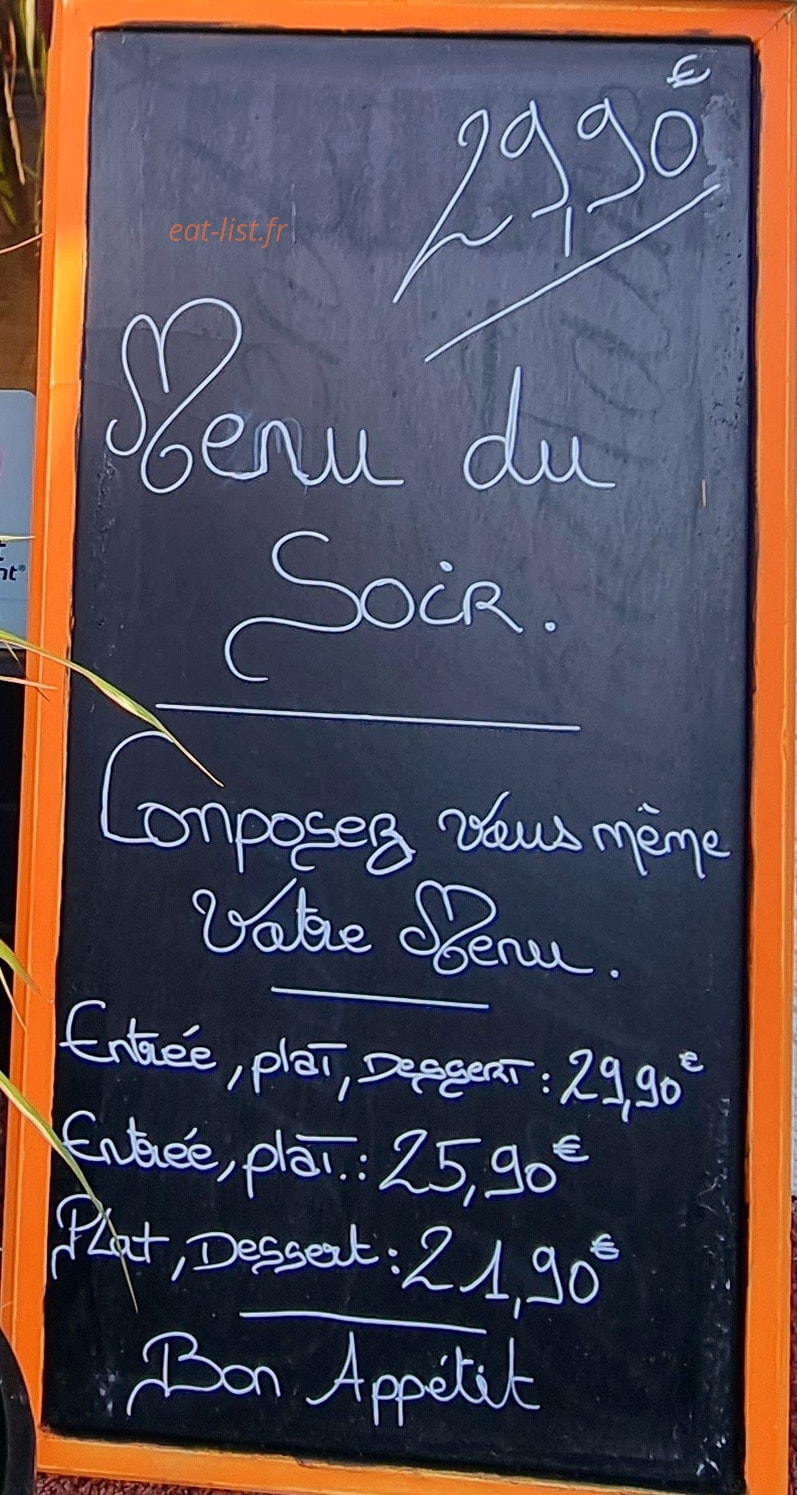 29,90€
eat-list.fr
Menu du
Soir.
Composez vous même
Votre Menu.
Entrée, plat, Dessert : 29,90€
Entrée, plat. : 25,90€
Plat, Dessert : 21,90€
Bon Appétit